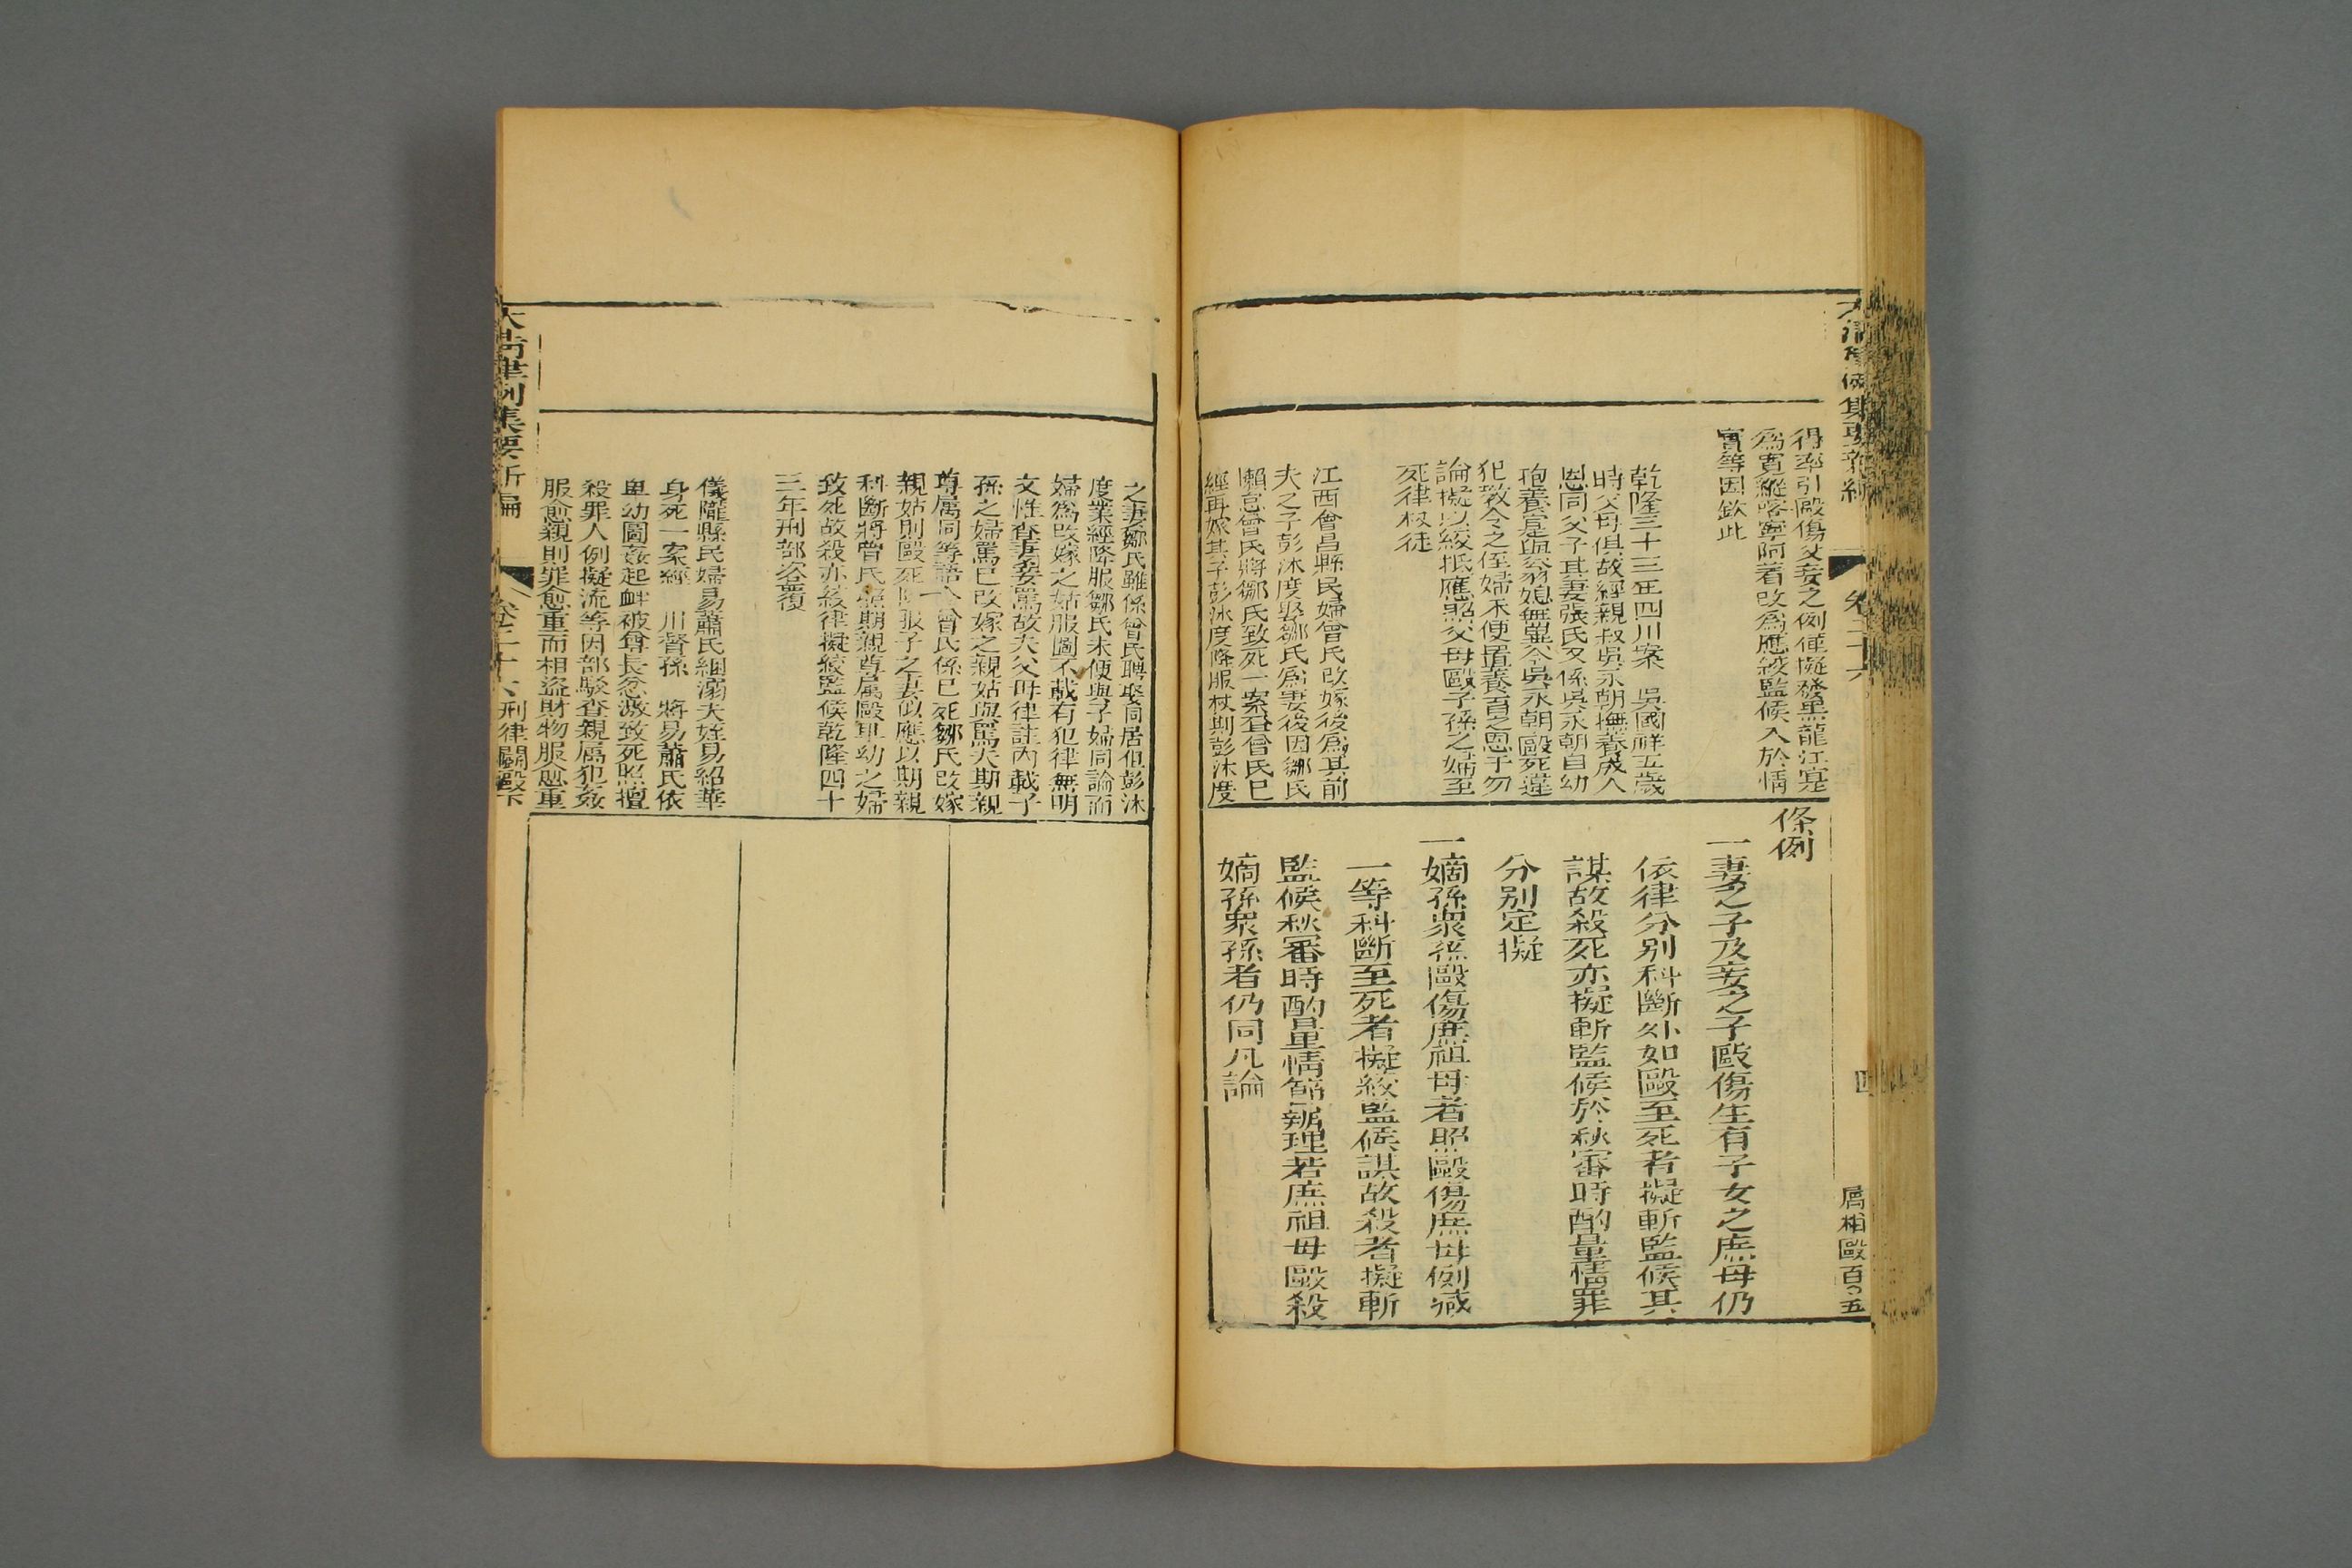 得率引毆傷父妾之例僅擬發黑龍江寔
爲寬縱喀寧阿着改爲應絞監候入於情
實等因欽此
乾隆三十三年四川案　吳國祥五歲
時父母俱故經親叔吳永朝撫養成人
恩同父子其妻張氏又係吳永朝自幼
抱養寔與翁媳無異今吳永朝毆死違
犯教令之侄婦未便置養育之恩于勿
論擬以絞抵應照父母毆子孫之婦至
死律杖徒
江西會昌縣民婦曾氏改嫁後爲其前
夫之子彭沐度娶鄒氏爲妻後因鄒氏
懶惰曾氏將鄒氏致死一案查曾氏已
經再嫁其子彭沐度降服杖期彭沐度
條例
一妻之子及妾之子毆傷生有子女之庶母仍
依律分别科斷外如毆至死者擬斬監候其
謀故殺死亦擬斬監候於秋審時酌量情罪
分别定擬
一嫡孫衆孫毆傷庶祖母者照毆傷庶母例減
一等科斷至死者擬絞監候謀故殺者擬斬
監候秋審時酌量情節辦理若庶祖母毆殺
嫡孫衆孫者仍同凡論
屬相毆百〇五
之妻鄒氏雖係曾氏聘娶同居但彭沐
度業經降服鄒氏未便與子婦同論而
婦爲改嫁之姑服圖不載有犯律無明
文惟查妻妾罵故夫父母律註內載子
孫之婦罵已改嫁之親姑與罵夫期親
尊屬同等語今曾氏係已死鄒氏改嫁
親姑則毆死降服子之妻似應以期親
科斷將曾氏照期親尊屬毆卑幼之婦
致死故殺亦絞律擬絞監候乾隆四十
三年刑部咨覆
儀隴縣民婦易蕭氏絪溺夫姪易紹華
身死一案經　川督孫　將易蕭氏依
卑幼圖姦起衅被尊長忿激致死照擅
殺罪人例擬流等因部駁查親屬犯姦
服愈親則罪愈重而相盜財物服愈重
大清律例集要新編　卷二十六　刑律鬭毆下